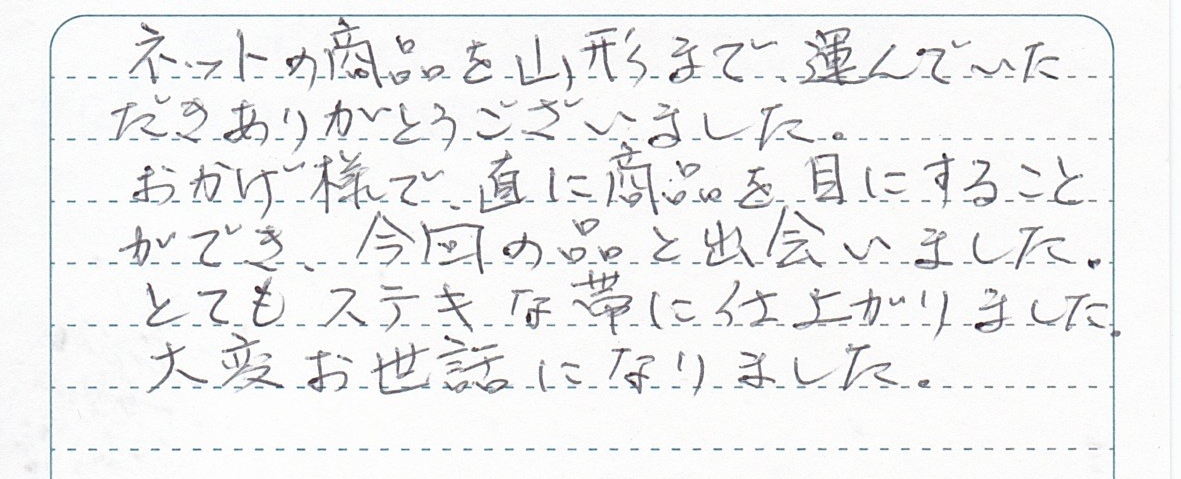 ネットの商品を山形まで、運んでいた
だきありがとうございました。
おかげ様で、直に商品を目にすること
ができ、今回の品と出会いました。
とてもステキな帯に仕上がりました。
大変お世話になりました。